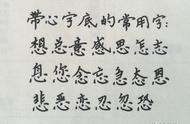 带心字底的常用字：
想总意感思怎志
息您念忘急态恩
悲恶恋忍忽恐